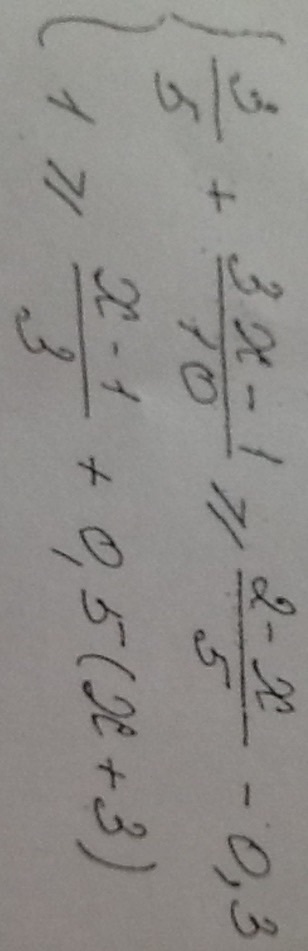 { 3/5 + (3x - 1)/10 ⩾ (2 - x)/5 - 0,3
1 ⩾ (x - 1)/3 + 0,5(x + 3)